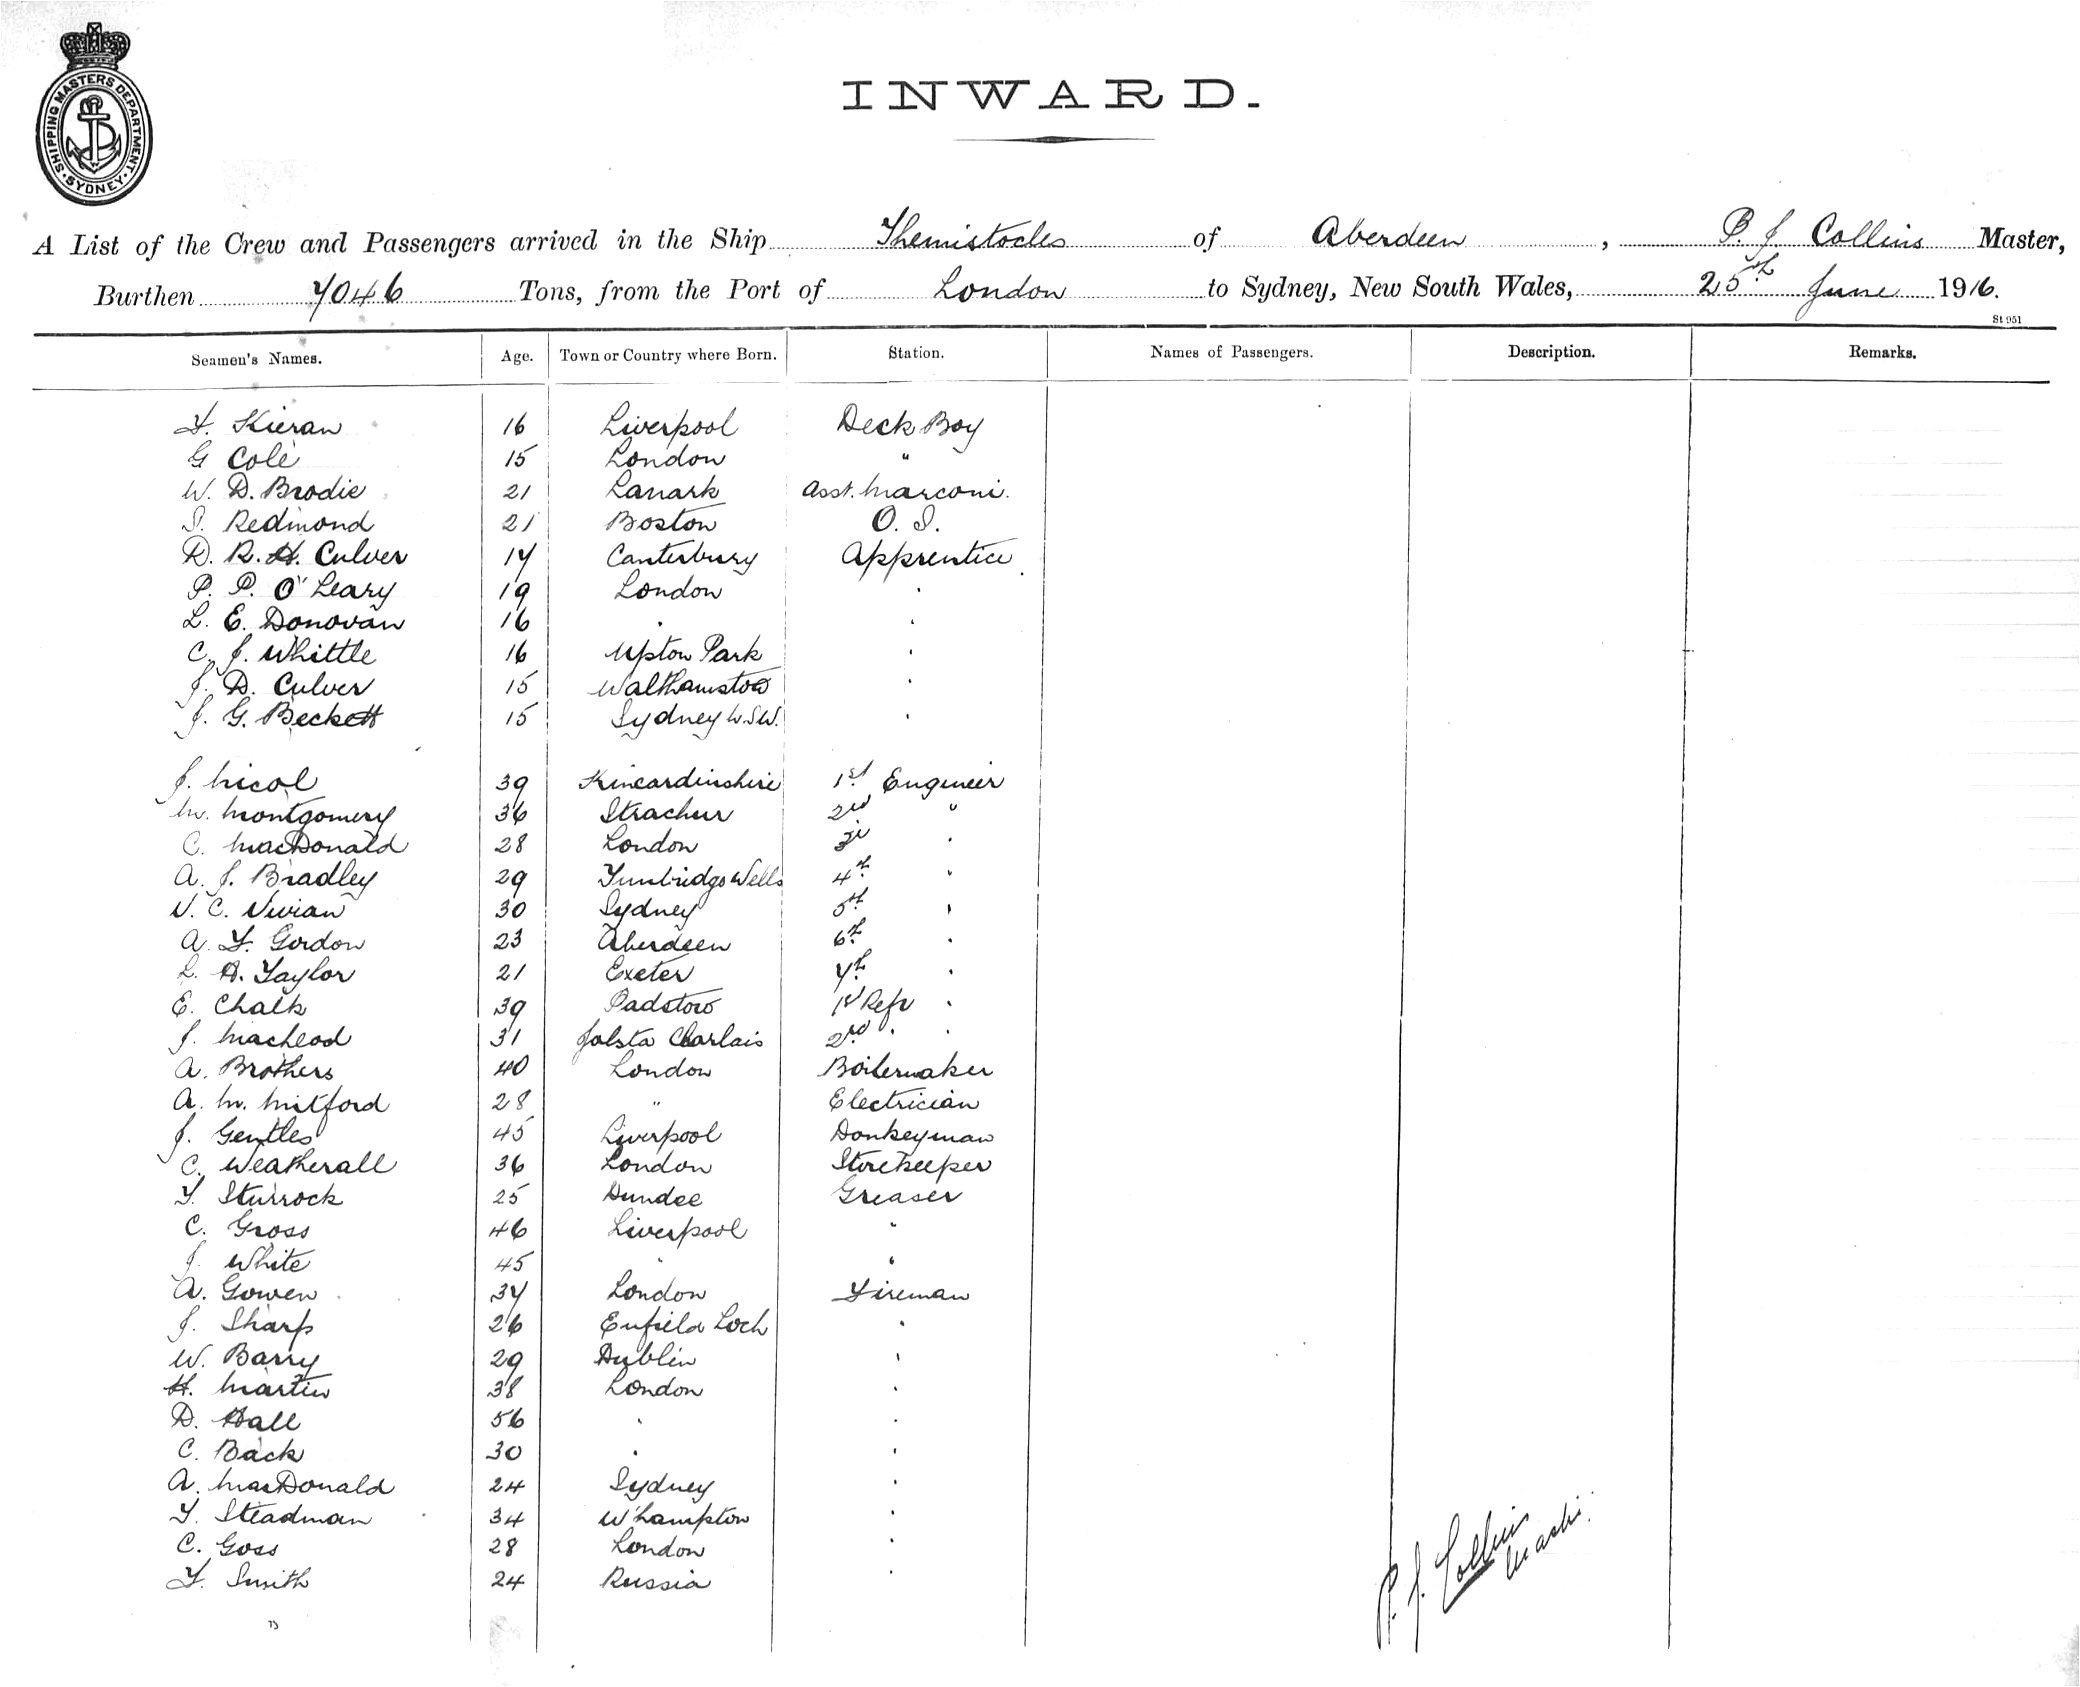 SHIPPING MASTERS DEPARTMENT. SYDNEY
INWARD.
A List of the Crew and Passengers arrived in the Ship Themistocles of Aberdeen, P. J. Collins Master,
Burthen 7046 Tons, from the Port of London to Sydney, New South Wales, 25th June 1916.
St 951
Seamen's Names. Age. Town or Country where Born. Station. Names of Passengers. Description. Remarks.
F. Kieran 16 Liverpool Deck Boy
G Cole 15 London "
W. D. Brodie 21 Lanark Asst. Marconi.
S. Redmond 21 Boston O. S.
D. R. H. Culver 17 Canterbury Apprentice
P. P. O'Leary 19 London "
L. E. Donovan 16 " "
C. J. Whittle 16 Upton Park "
J. D. Culver 15 Walthamstow "
J. G. Beckett 15 Sydney N.S.W. "
J. Nicol 39 Kincardinshire 1st Engineer
M. Montgomery 36 Strachur 2nd "
C. MacDonald 28 London 3rd "
A. J. Bradley 29 Tunbridge Wells 4th "
V. C. Vivian 30 Sydney 5th "
A. F. Gordon 23 Aberdeen 6th "
L. H. Taylor 21 Exeter 7th "
E. Chalk 39 Padstow 1st Refr "
J. MacLeod 31 2nd " "
A. Brothers 40 London Boilermaker
A. M. Mitford 28 " Electrician
J. Gentles 45 Liverpool Donkeyman
C. Weatherall 36 London Storekeeper
T. Sturrock 25 Dundee Greaser
C. Gross 46 Liverpool "
J. White 45 " "
A. Gowen 37 London Fireman
J. Sharp 26 Enfield Lock "
W. Barry 29 Dublin "
H. Martin 38 London "
D. Hall 56 " "
C. Back 30 " "
A. MacDonald 24 Sydney "
T. Steadman 34 W'hampton "
C. Goss 28 London "
F. Smith 24 Russia "
P. J. Collins
Master